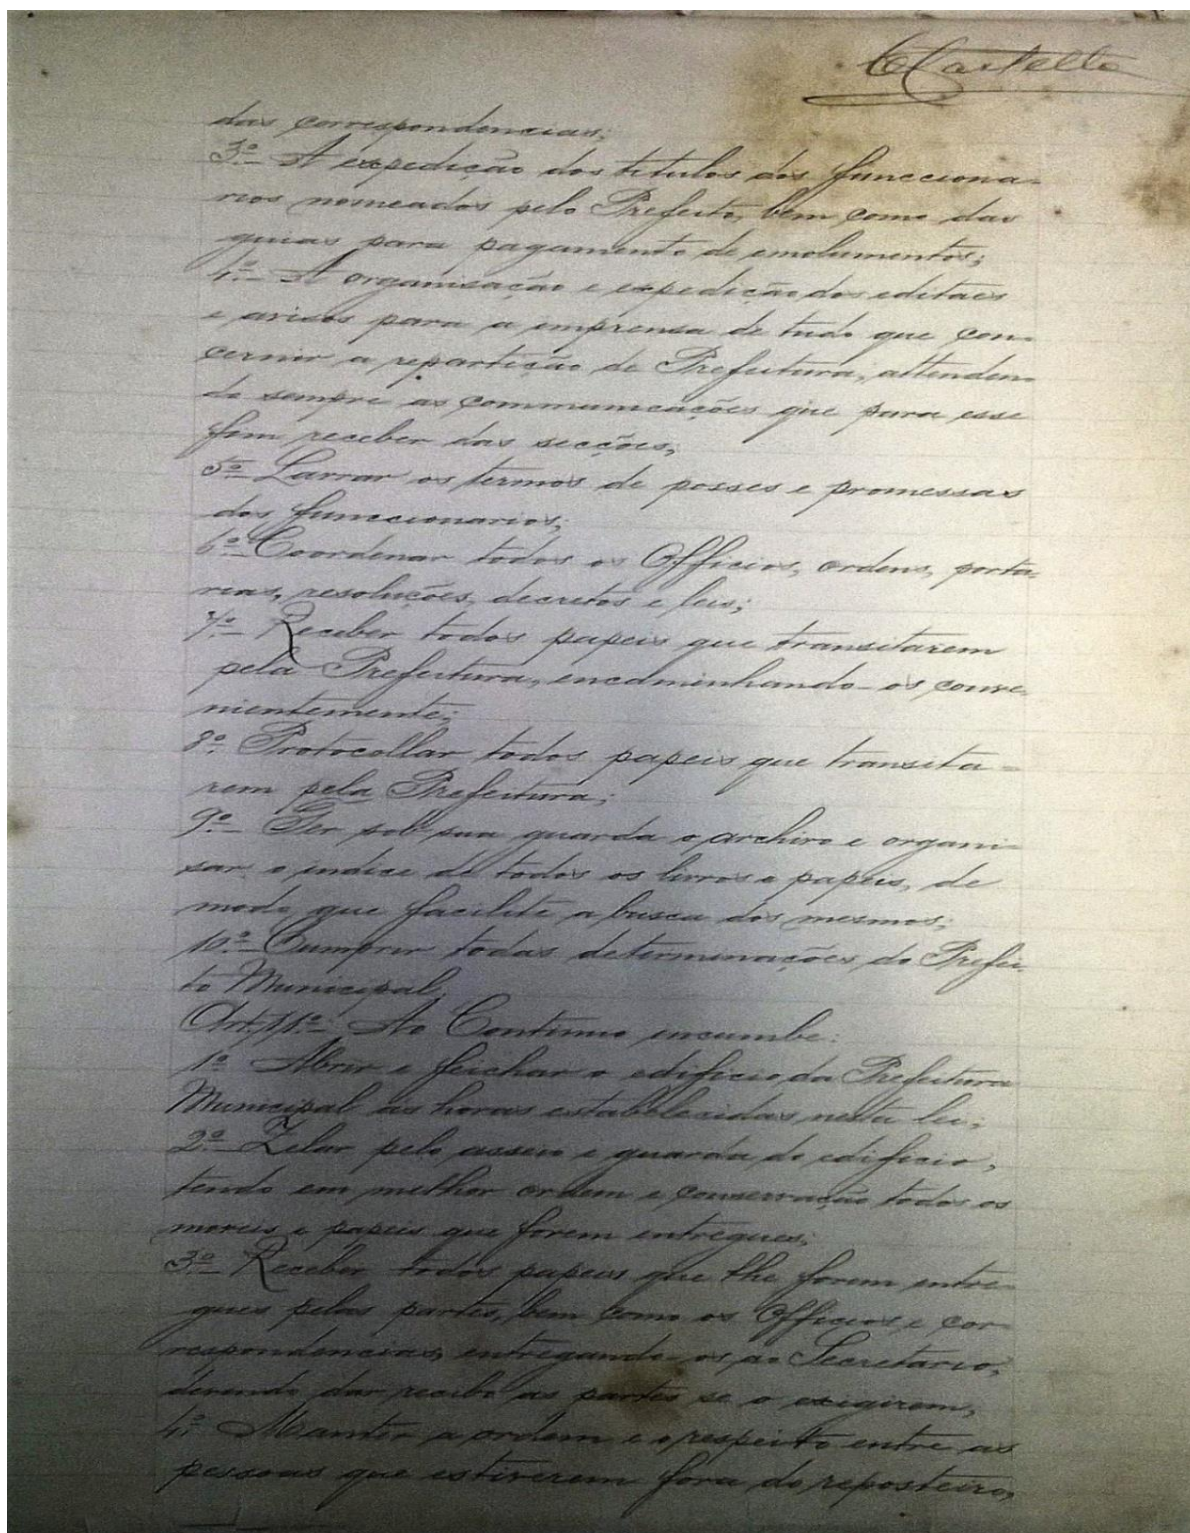 CCastello
das correspondencias;
3º- A expedição dos titulos dos funcciona-
rios nomeados pelo Prefeito, bem como das
guias para pagamento de emolumentos;
4º- A organisação e expedição dos editaes
e avisos para a imprensa de tudo que con-
cernir a repartição de Prefeitura, attenden-
do sempre as communicações que para esse
fim receber das secções;
5º- Lavrar os termos de posses e promessas
dos funccionarios;
6º- Coordenar todos os Officios, ordens, porta-
rias, resoluções, decretos e leis;
7º- Receber todos papeis que transitarem
pela Prefeitura, encaminhando-os conve-
nientemente;
8º- Protocollar todos papeis que transita-
rem pela Prefeitura;
9º- Ter sob sua guarda o archivo e organi-
sar o indice de todos os livros e papeis, de
modo que facilite a busca dos mesmos;
10º- Cumprir todas determinações do Prefei-
to Municipal.
Art. 11º- Ao Continuo incumbe:
1º- Abrir e feichar o edificio da Prefeitura
Municipal as horas estabelecidas nesta lei;
2º- Zelar pelo asseio e guarda do edificio,
tendo em melhor ordem e conservação todos os
moveis e papeis que forem entregues;
3º- Receber todos papeis que lhe forem entre-
gues pelas partes, bem como os Officios e cor-
respondencias, entregando-os ao Secretario,
devendo dar recibo as partes se o exigirem;
4º- Manter a ordem e o respeito entre as
pessoas que estiverem fora do reposteiro,